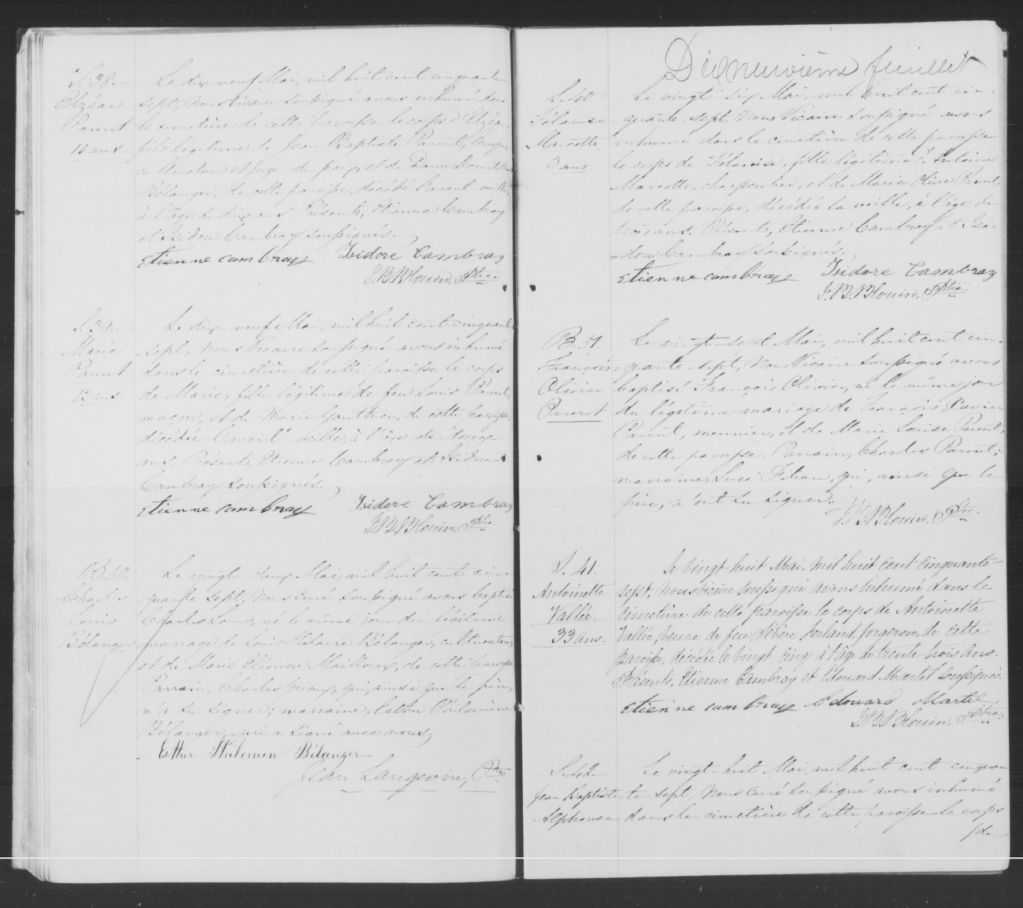 S. 38.
Parent
10 ans
Le dix neuf Mai, mil huit cent cinquante
sept, Nous Vicaire soussigné avons inhumé dans
le cimetière de cette paroisse le corps d'
fils légitime de Jean Baptiste Parent,
Bélanger, de cette paroisse, décédé l'avant veille,
à l'âge de dix ans. Présents, Etienne Cambray
et Isidore Cambray soussignés.
Etienne cambray Isidore Cambray
J.B.Blouin, Ptre
S. 39.
Marie
Parent
ans
Le dix neuf Mai, mil huit cent cinquante
sept, Nous Vicaire soussigné avons inhumé
dans le cimetière de cette paroisse le corps
de Marie, fille légitime de feu Louis Parent,
maçon, et de Marie Gauthier, de cette paroisse,
décédée l'avant veille, à l'âge de
ans. Présents, Etienne Cambray et Isidore
Cambray soussignés.
Etienne cambray Isidore Cambray
J.B.Blouin, Ptre
B. 50.
Charles
Louis
Bélanger
Le vingt deux Mai, mil huit cent cin-
quante sept, Nous curé soussigné avons baptisé
Charles Louis, né le même jour du légitime
mariage de Louis Bélanger, cultivateur,
et de Marie Mailloux, de cette paroisse.
Parrain, Charles Giroux, qui, ainsi que le père,
n'a su signer; marraine, Esther Philomène
Bélanger, qui a signé avec nous.
Esther Philomen Bélanger
Jean Langevin, Ptre
Dixneuvième feuillet
S. 40
Marcotte
3 ans
Le vingt six Mai, mil huit cent cin-
quante sept, Nous Vicaire soussigné avons
inhumé dans le cimetière de cette paroisse
le corps de fille légitime d'Antoine
Marcotte, charpentier, et de Marie Olive Parent
de cette paroisse, décédée la veille, à l'âge de
trois ans. Présents, Etienne Cambray et Isi-
dore Cambray soussignés.
Etienne cambray Isidore Cambray
J.B.Blouin, Ptre
B. 51.
François
Olivier
Parent
Le vingt-sept Mai, mil huit cent cin-
quante-sept, Nous Vicaire soussigné avons
baptisé François Olivier, né le même jour
du légitime mariage de François Xavier
Parent, menuisier, et de Marie Louise Parent,
de cette paroisse. Parrain, Charles Parent;
marraine, Luce qui, ainsi que le
père, n'ont su signer.
J.B.Blouin, Ptre
S. 41.
Antoinette
Vallée
33 ans.
Le vingt huit Mai, mil huit cent cinquante
sept, Nous Vicaire soussigné avons inhumé dans le
cimetière de cette paroisse le corps de Antoinette
Vallée, veuve de feu forgeron, de cette
paroisse, décédée le vingt cinq à l'âge de trente trois ans.
Présents, Etienne Cambray et Edouard Martel soussignés.
Etienne cambray Edouard Martel
J.B.Blouin, Ptre
S. 42
Jean Baptiste
Alphonse
Le vingt huit Mai, mil huit cent cinquan-
te sept, Nous curé soussigné avons inhumé
dans le cimetière de cette paroisse le corps
/de